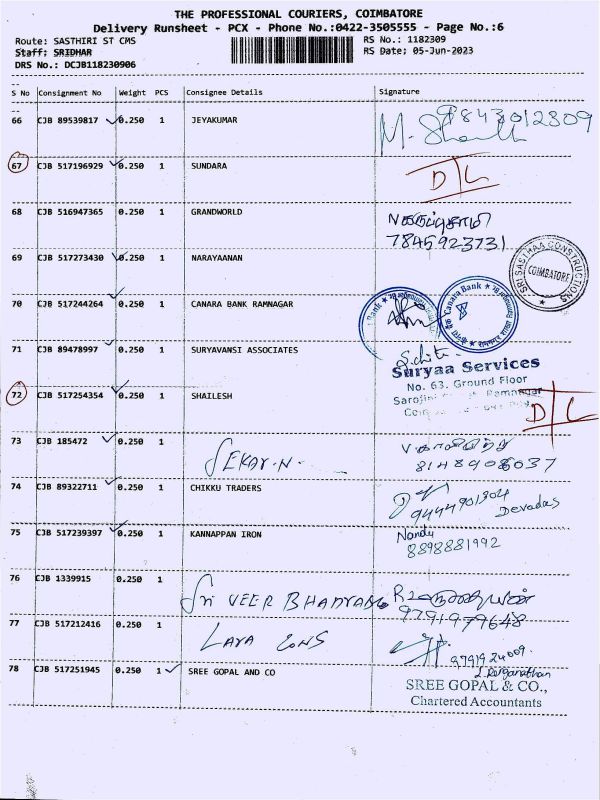 THE PROFESSIONAL COURIERS, COIMBATORE
Delivery Runsheet - PCX - Phone No.:0422-3505555 - Page No.:6
Route: SASTHIRI ST CMS RS No.: 1182309
Staff: SRIDHAR RS Date: 05-Jun-2023
DRS No.: DCJB118230906
S No Consignment No Weight PCS Consignee Details Signature
66 CJB 89539817 0.250 1 JEYAKUMAR 9843012309
67 CJB 517196929 0.250 1 SUNDARA D/L
68 CJB 516947365 0.250 1 GRANDWORLD
7845923731
69 CJB 517273430 0.250 1 NARAYAANAN
SRI SASTHAA CONSTRUCTIONS
COIMBATORE
70 CJB 517244264 0.250 1 CANARA BANK RAMNAGAR
Canara Bank
71 CJB 89478997 0.250 1 SURYAVANSI ASSOCIATES
Suryaa Services
No. 63. Ground Floor
Ramnagar
72 CJB 517254354 0.250 1 SHAILESH D/L
73 CJB 185472 0.250 1 SEKAR.N.
8148908037
74 CJB 89322711 0.250 1 CHIKKU TRADERS
9444901304
Devadas
75 CJB 517239397 0.250 1 KANNAPPAN IRON Nandu
8898881992
76 CJB 1339915 0.250 1 Sri VEER
9791979648
77 CJB 517212416 0.250 1 LAYA CONS
9791924009.
78 CJB 517251945 0.250 1 SREE GOPAL AND CO
SREE GOPAL & CO.,
Chartered Accountants